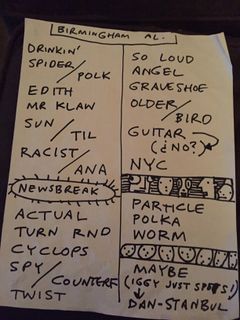 BIRMINGHAM AL.
DRINKIN'
SPIDER/
POLK
EDITH
MR KLAW
SUN/
TIL
RACIST/
ANA
NEWSBREAK
ACTUAL
TURN RND
CYCLOPS
SPY/
COUNTERF
TWIST
SO LOUD
ANGEL
GRAVESHOE
OLDER/
BIRD
GUITAR
(¿NO?)
NYC
PARTICLE
POLKA
WORM
MAYBE
(IGGY JUST SPOTS!)
DAN-STANBUL